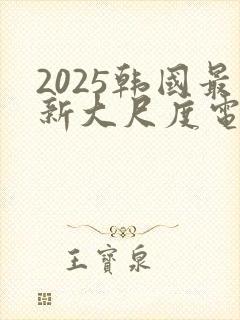 2025韩國最
新大尺度電
王寶泉